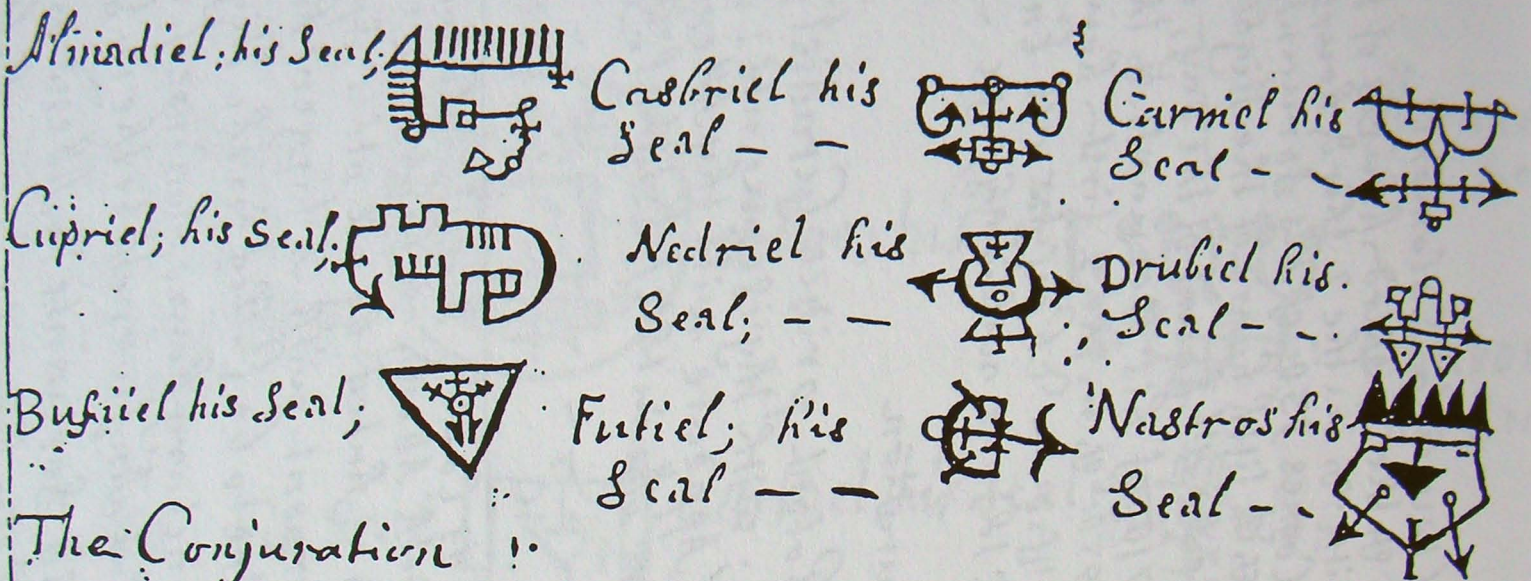 Almadiel; his Seal;
Casbriel his
Seal – –
Carniel his
Seal - -
Cupriel; his Seal;
Nedriel his
Seal; – –
Drubiel his.
Seal - -
Bufiiel his Seal;
Futiel; his
Seal – –
Nastros his
Seal - -
The Conjuration